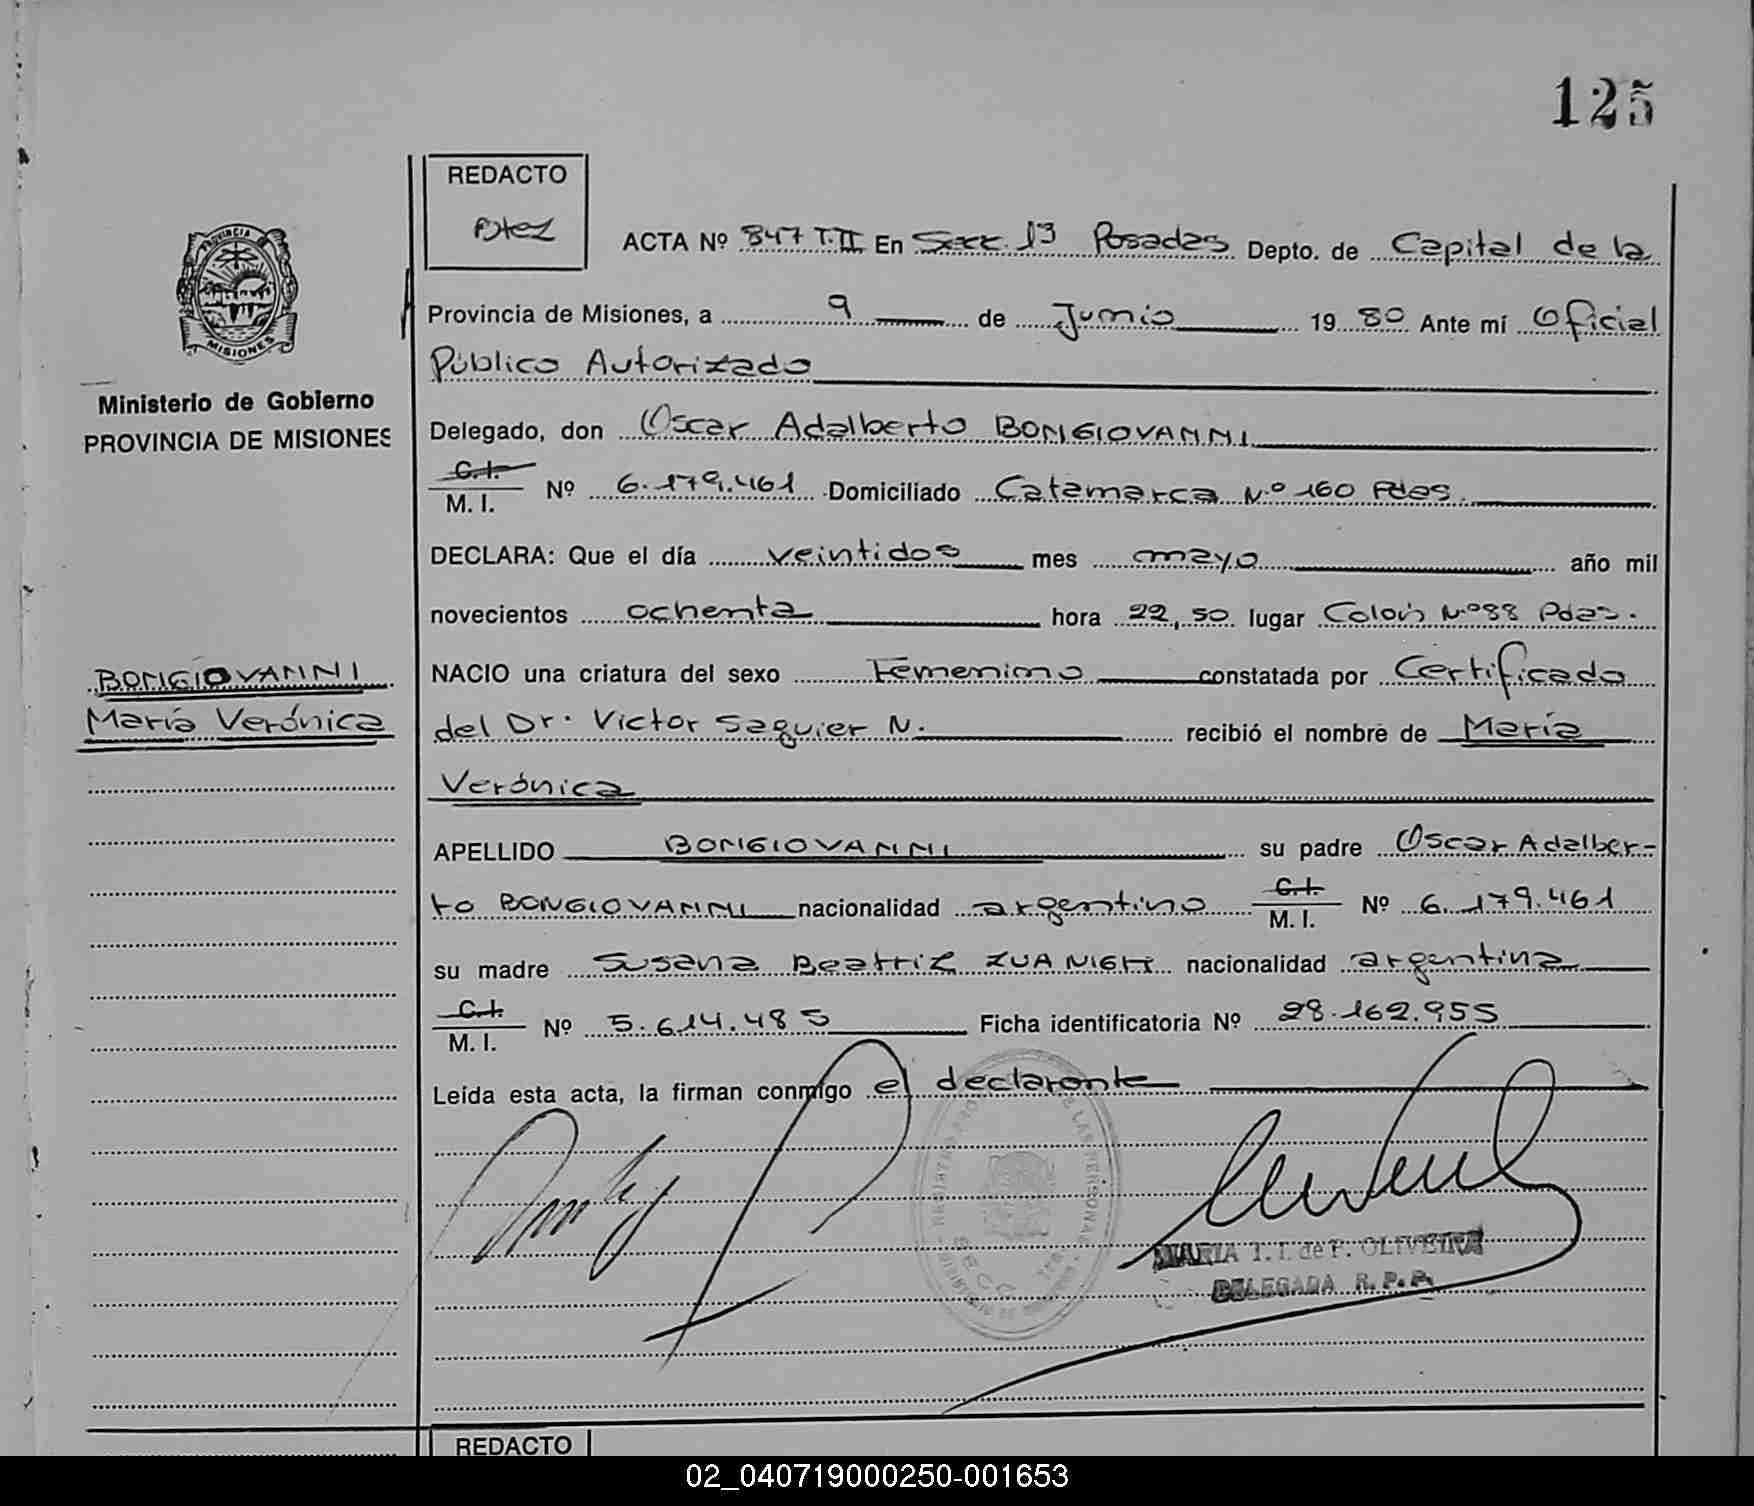 125
REDACTO
ACTA Nº 847 T.II En Secc. 13 Posadas Depto. de Capital de la
PROVINCIA
MISIONES
Provincia de Misiones, a 9 de Junio 1980 Ante mí Oficial
Público Autorizado
Ministerio de Gobierno
PROVINCIA DE MISIONES
Delegado, don Oscar Adalberto BONGIOVANNI
C.I.
M. I. Nº 6.179.461 Domiciliado Catamarca Nº 160 Pdas.
DECLARA: Que el día veintidos mes mayo año mil
novecientos ochenta hora 22,50 lugar Colón Nº88 Pdas.
BONGIOVANNI
María Verónica
NACIO una criatura del sexo Femenino constatada por Certificado
del Dr. Victor Saguier N. recibió el nombre de María
Verónica
APELLIDO BONGIOVANNI su padre Oscar Adalber-
to BONGIOVANNI nacionalidad argentino C.I. M. I. Nº 6.179.461
su madre Susana Beatriz nacionalidad argentina
C.I.
M. I. Nº 5.614.485 Ficha identificatoria Nº 28.162.955
Leída esta acta, la firman conmigo el declarante
MARIA T. I. de F. OLIVEIRA
DELEGADA R. P. P.
REDACTO
02_040719000250-001653